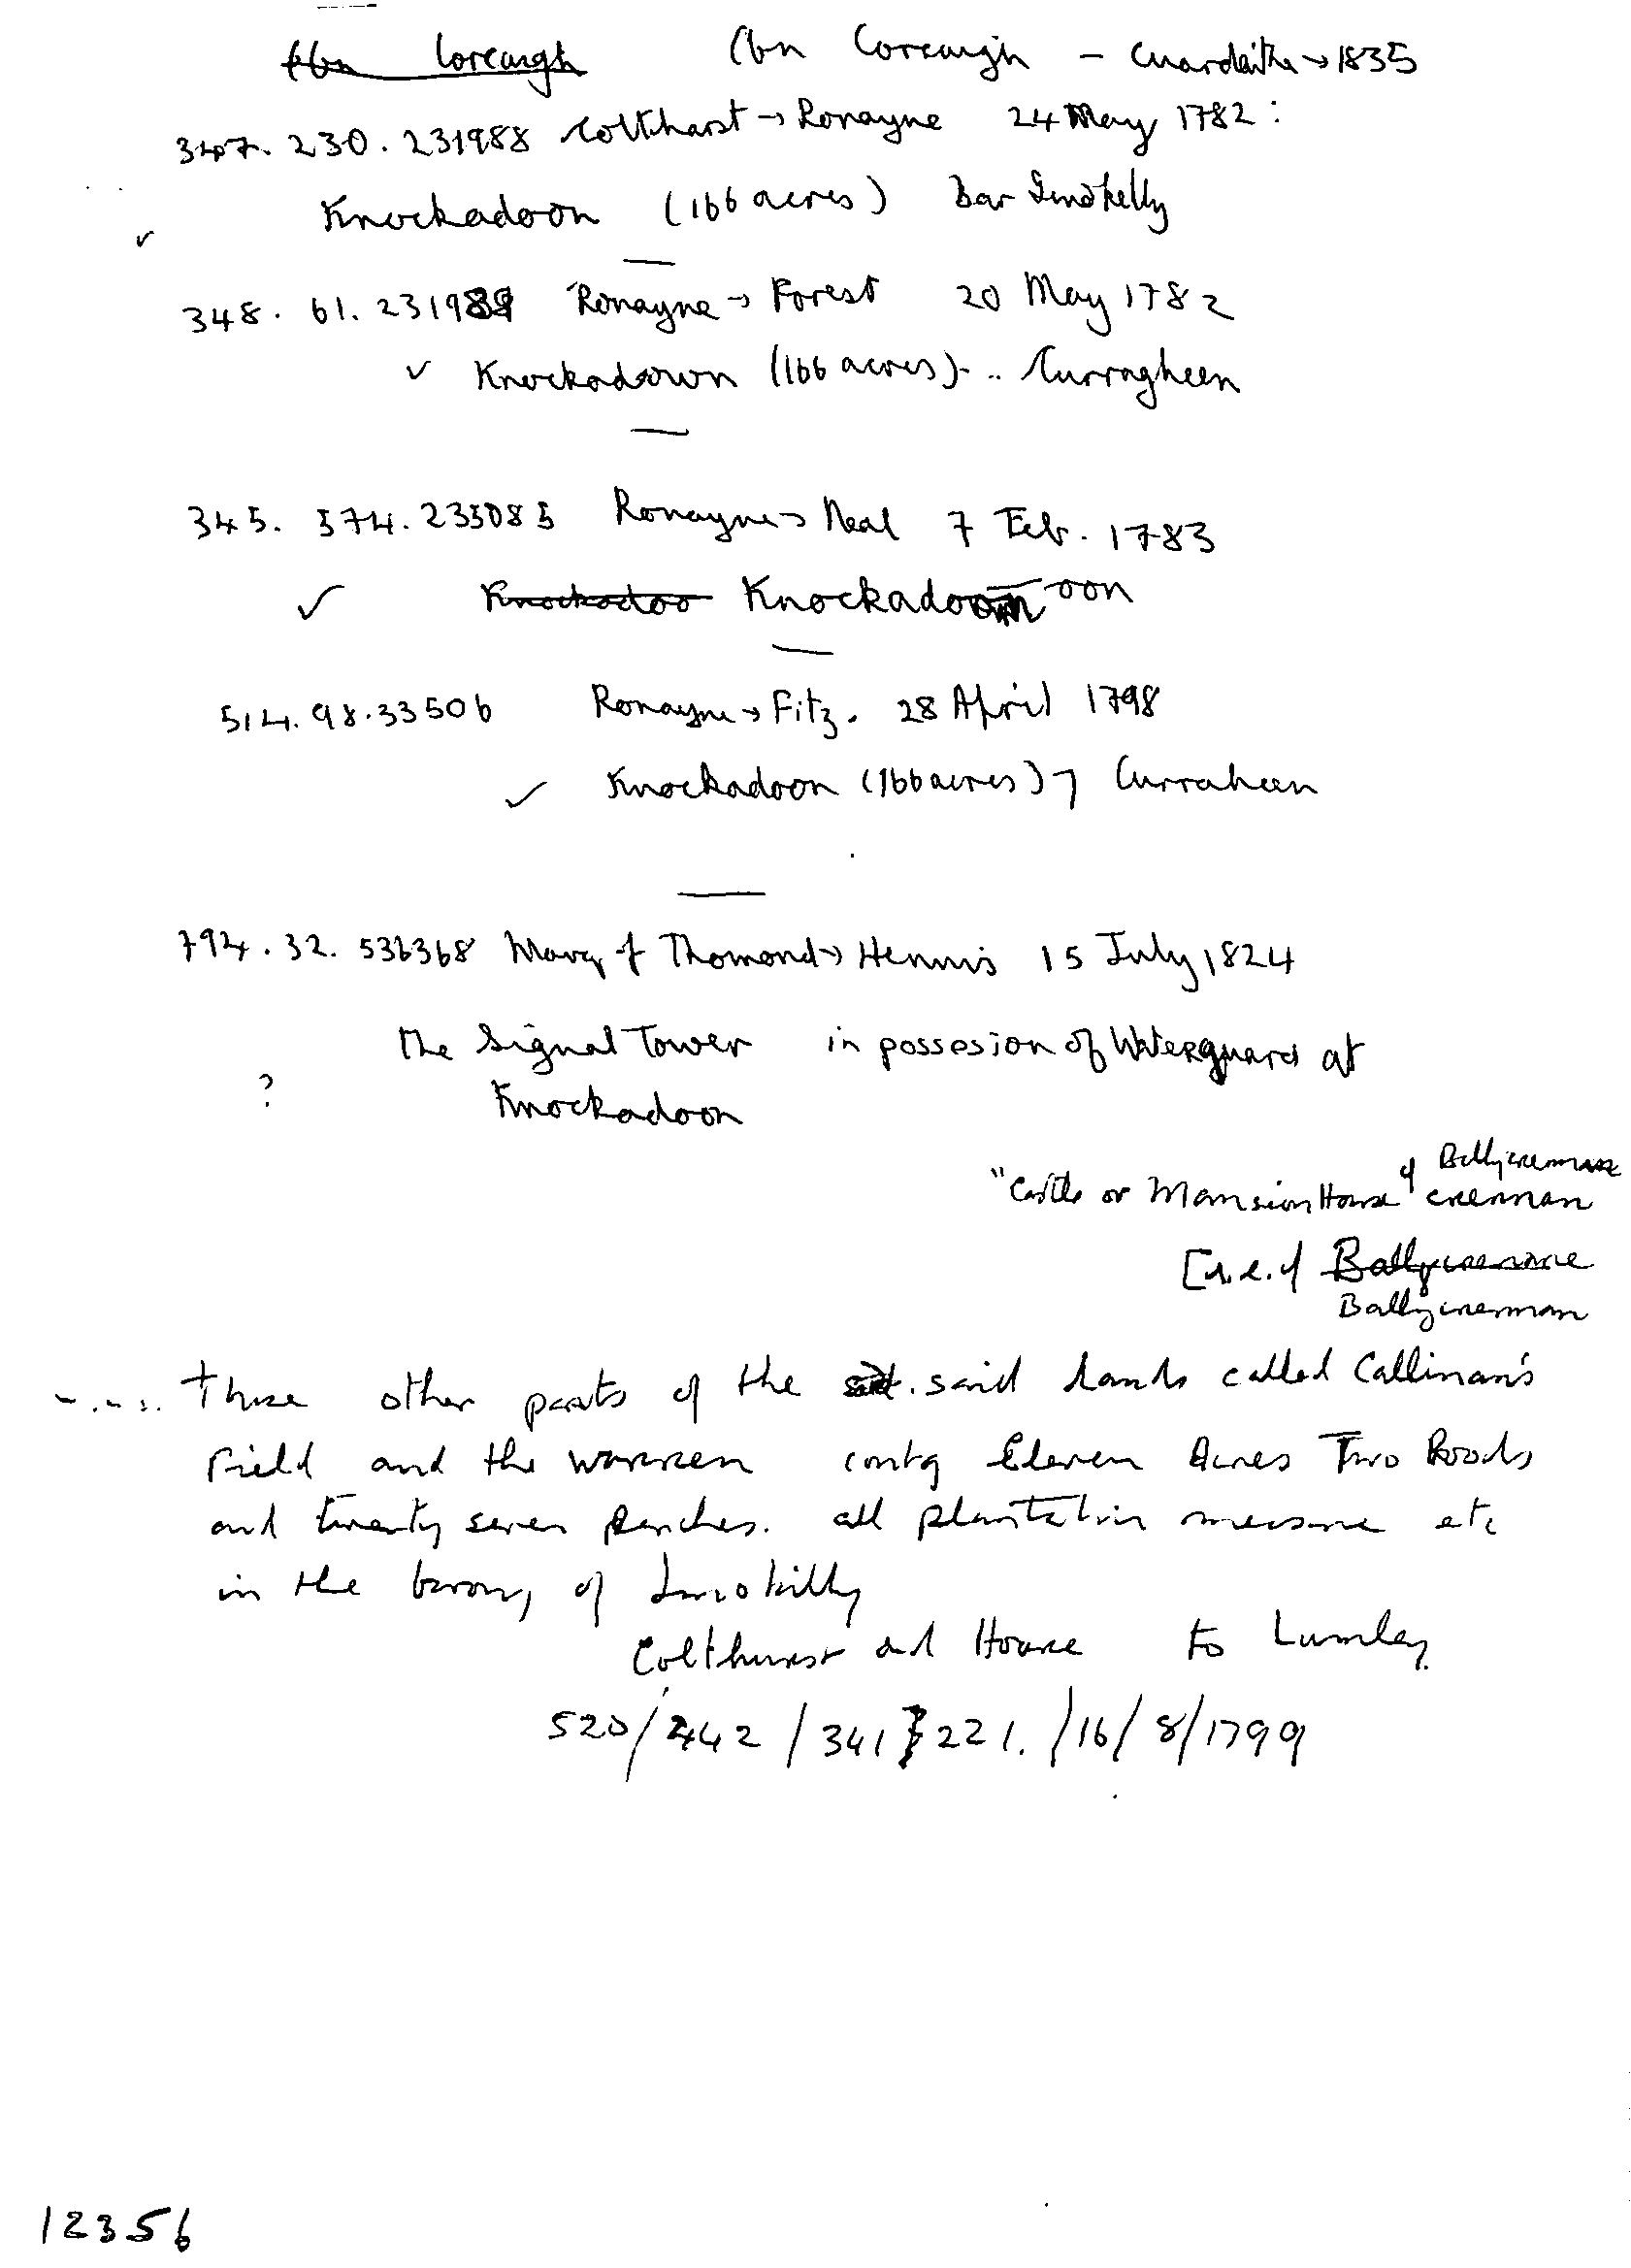 Cbn Corcaigh Cbn Corcaigh - Cuardaithe → 1835
347. 230. 231988 Colthurst → Ronayne 24 May 1782:
✓ Knockadoon (166 acres) Bar Imokelly
348. 61. 231989 Ronayne → Forest 20 May 1782
✓ Knockadown (166 acres) .. Curragheen
345. 574. 233085 Ronayne → Neal 7 Feb. 1783
✓ Knockadoo Knockadoon oon
514. 98. 33506 Ronayne → Fitz. 28 April 1798
✓ Knockadoon (166 acres) ⁊ Curraheen
794. 32. 536368 Marq of Thomond → Hennis 15 July 1824
the Signal Tower in possesion of Waterguard at
? Knockadoon
"Castle or Mansion House of Ballycrennane
crennan
[i.e. of Ballycrennane
Ballycrennan
..... those other parts of the said lands called Callinan's
Field and the warren contg Eleven Acres Two Roods
and twenty seven perches. all plantation measure etc
in the barony of Imokilly
Colthurst and Hoare to Lumley.
520/442/341221./16/8/1799
12356